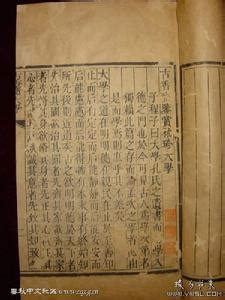 古香齋鑒賞袖珍大學
子程子曰大學孔氏之遺書而初學入
德之門也於今可見古人為學次第者
獨賴此篇之存而論孟次之學者必由
是而學焉則庶乎其不差矣
大學之道在明明德在親民在止於至善知
止而后有定定而后能靜靜而后能安安而
后能慮慮而后能得物有本末事有終始知
所先後則近道矣古之欲明明德於天下者
先治其國欲治其國者先齊其家欲齊其家
者先脩其身欲脩其身者先正其心欲正其
心者先誠其意欲誠其意者先致其知
春秋中文社区